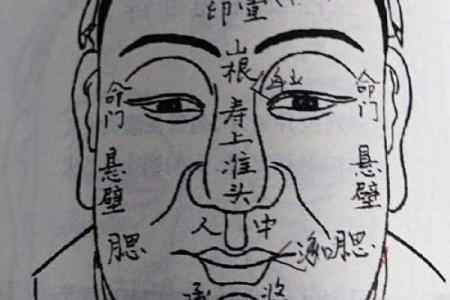 印堂
山根
命门
命门
寿上
准头
悬壁
悬壁
人中
腮
海口
腮
承